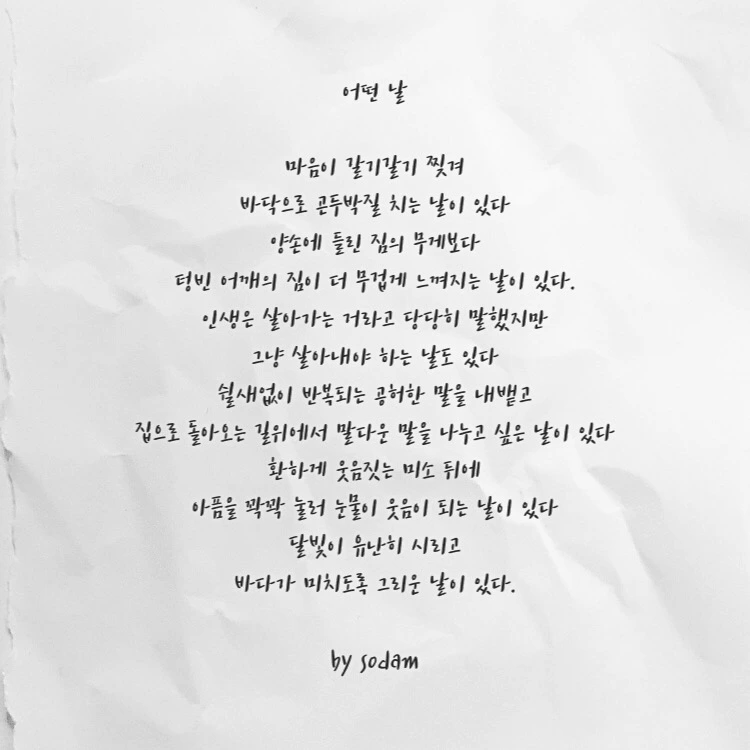 어떤 날
마음이 갈기갈기 찢겨
바닥으로 곤두박질 치는 날이 있다
양손에 들린 짐의 무게보다
텅빈 어깨의 짐이 더 무겁게 느껴지는 날이 있다.
인생은 살아가는 거라고 당당히 말했지만
그냥 살아내야 하는 날도 있다
쉴새없이 반복되는 공허한 말을 내뱉고
집으로 돌아오는 길위에서 말다운 말을 나누고 싶은 날이 있다
환하게 웃음짓는 미소 뒤에
아픔을 꽉꽉 눌러 눈물이 웃음이 되는 날이 있다
달빛이 유난히 시리고
바다가 미치도록 그리운 날이 있다.
by sodam